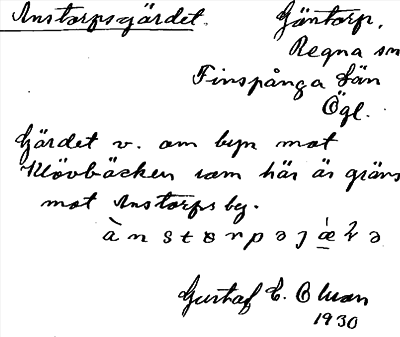 Anstorpsgärdet. Gäntorp,
Regna sn
Finspånga län
Ögl.
Gärdet v. om byn mot
Klövbäcken som här är gräns
mot Anstorps by.
Gustaf E. Olson
1930